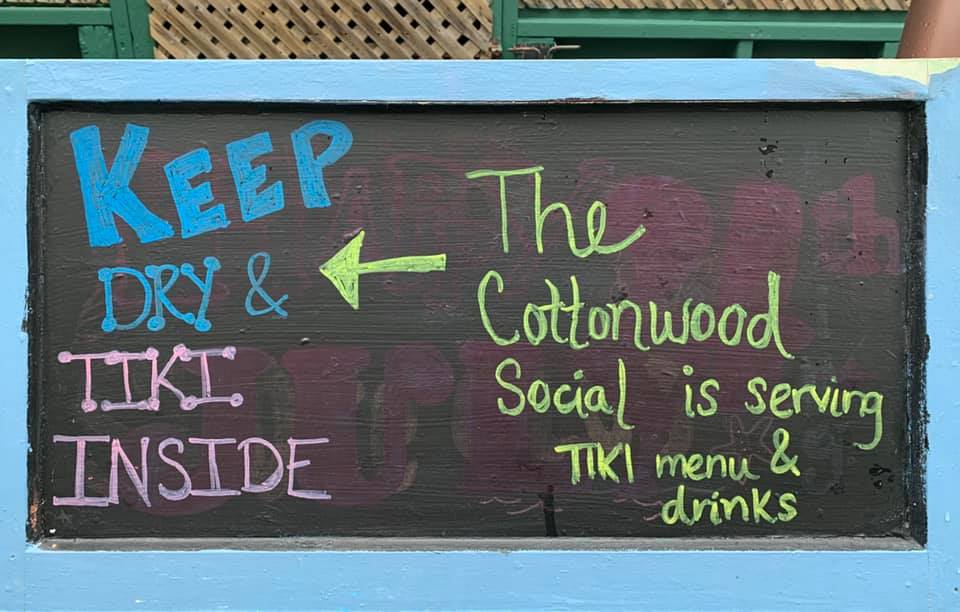 KEEP
DRY &
TIKI
INSIDE
The
Cottonwood
Social is serving
TIKI menu &
drinks